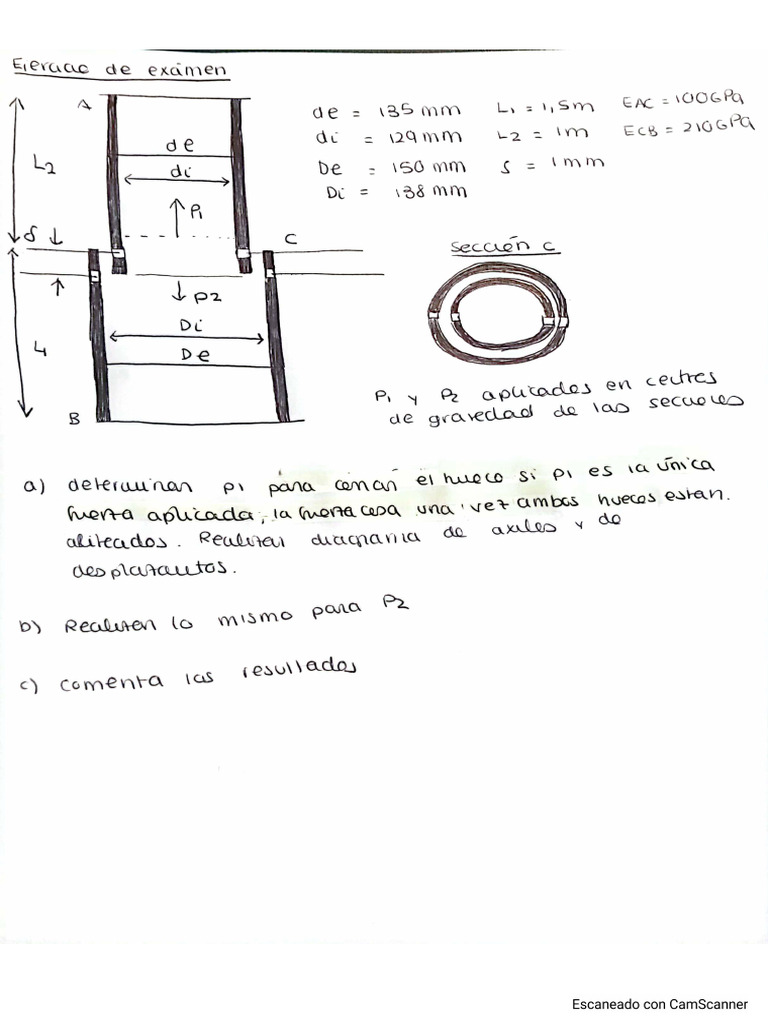 Ejercicio de exámen
A
de = 135 mm L1 = 1,5m EAC = 100GPa
di = 129 mm L2 = 1m ECB = 210GPa
De = 150 mm δ = 1mm
Di = 138 mm
L2
de
di
P1
δ
C
Sección C
P2
Di
De
L1
B
P1 y P2 aplicados en centros
de gravedad de las secciones
a) determinar P1 para cerrar el hueco si P1 es la única
fuerza aplicada, la fuerza cesa una vez ambos huecos estan
alineados. Realizar diagrama de axiles y de
desplazamientos.
b) Realizar lo mismo para P2
c) comenta los resultados
Escaneado con CamScanner